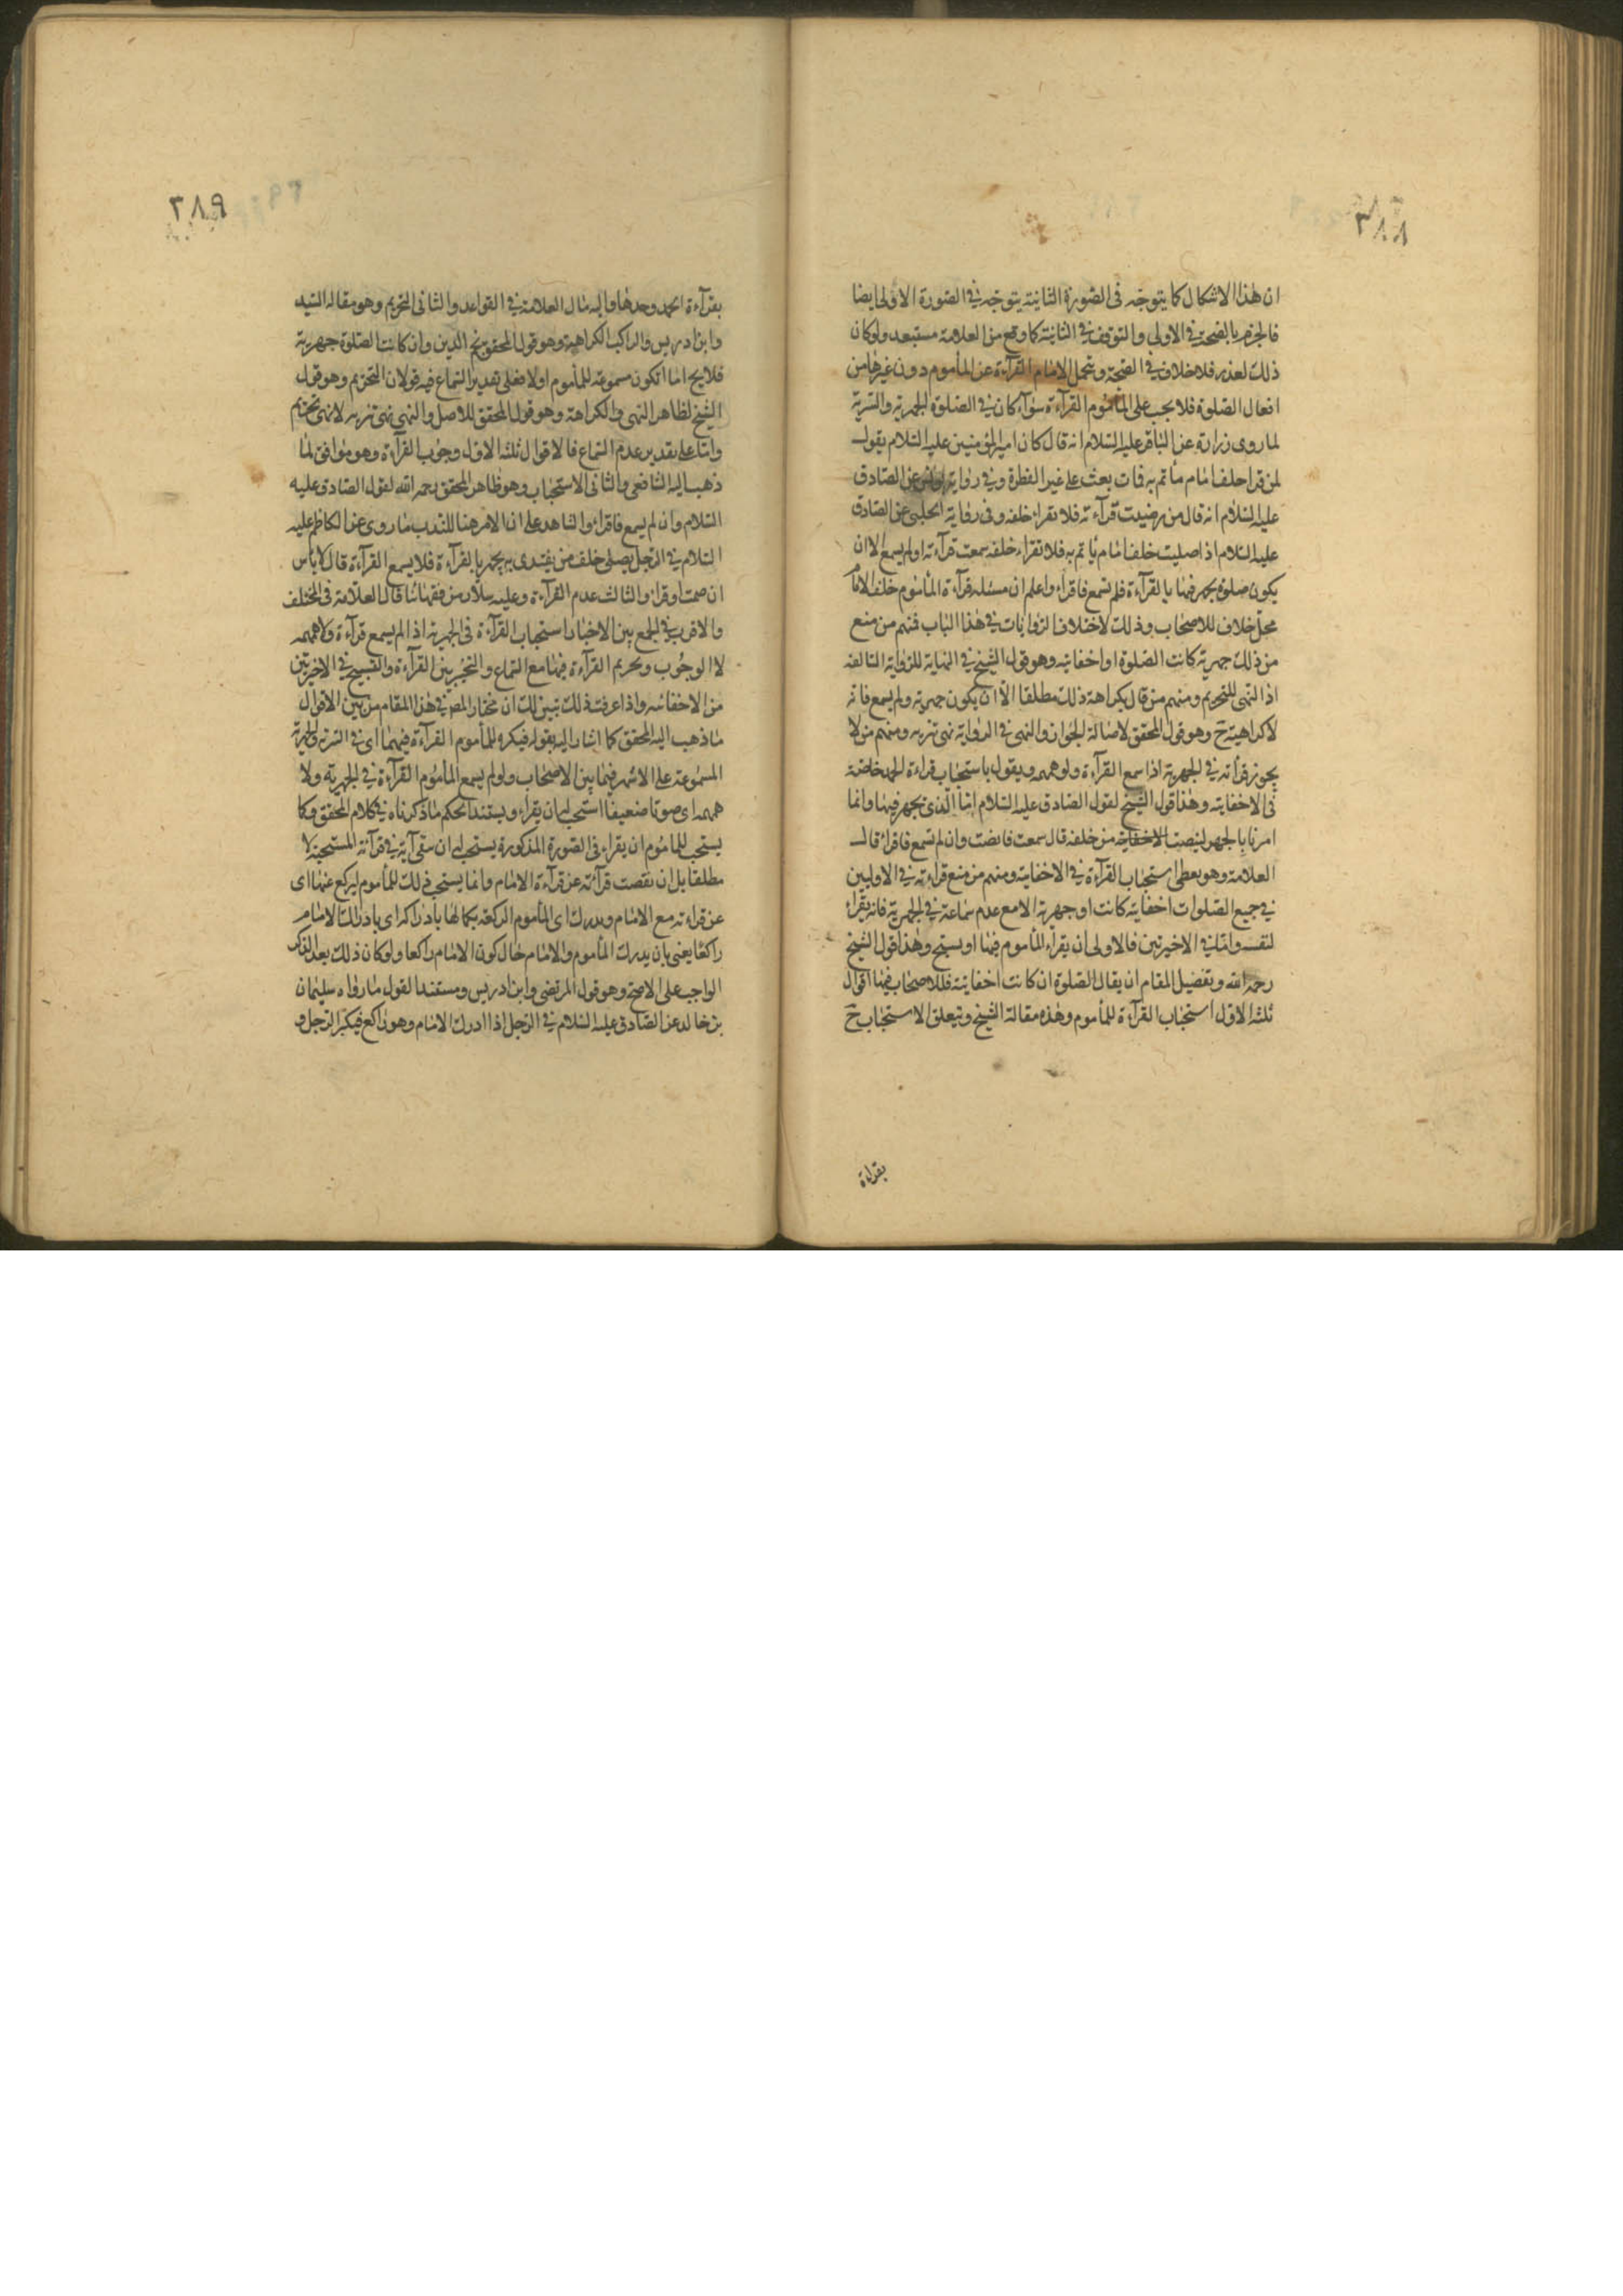 ٣٨٨
ان هذا الاشكال كما يتوجه فى الصورة الثانية يتوجه فى الصورة الاولى ايضا
فالجزم بالصحة فى الاولى والتوقف فى الثانية كما وقع من العلامة مستبعد ولو كان
ذلك لعذر فلا خلاف فى الصحة ويتحمل الامام القرآءة عن المأموم دون غيرها من
افعال الصلوة فلا يجب على المأموم القرآءة سوآء كان فى الصلوة الجهرية والسرية
لما روى زرارة عن الباقر عليه السلام انه قال كان امير المؤمنين عليه السلام يقول
لمن قرا خلف امام مأتم به فات بعث على غير الفطرة وفى رواية عن الصادق
عليه السلام انه قال من رضيت قرآءته فلا تقراء خلفه وفى رواية الحلبى عن الصادق
عليه السلام اذا صليت خلف امام ياتم به فلا تقراء خلفه سمعت قرآءته اولم يسمع الا ان
يكون صلوة يجهر فيها بالقرآءة فلم تسمع فاقراء واعلم ان مسئلة قرآءة المأموم خلف الامام
محل خلاف للاصحاب وذلك لاختلاف الروايات فى هذا الباب فمنهم من منع
من ذلك جهرية كانت الصلوة او اخفاتية وهو قول الشيخ فى النهاية للرواية السالفة
اذ النهى للتحريم ومنهم من قال بكراهة ذلك مطلقا الا ان يكون جهرية ولم يسمع فانه
لا كراهية ح وهو قول المحقق لاصالة الجواز والنهى فى الرواية نهى تنزيه ومنهم من لا
يجوز قرأته فى الجهرية اذا سمع القرآءة ولو همهمه ويقول باستحباب قراءة الحمد خاصة
فى الاخفاتية وهذا قول الشيخ لقول الصادق عليه السلام اما الذى يجهر فيها وانما
امرنا بالجهر لينصت الاخفاتية من خلفه قال سمعت فانصت وان لم تسمع فاقرا قال
العلامة وهو يعطى استحباب القرآءة فى الاخفاتية ومنهم من منع قراءته فى الاوليين
فى جميع الصلوات اخفاتية كانت او جهرية الا مع عدم سماعة فى الجهرية فانه يقراء
لنفسه واما فى الاخيرتين فالاولى ان يقراء المأموم فيها او يسبح وهذا قول الشيخ
رحمه الله وتفصيل المقام ان يقال الصلوة ان كانت اخفاتية فللاصحاب فيها اقوال
ثلثه الاول استحباب القرآءة للمأموم وهذه مقالة الشيخ ويتعلق الاستحباب ح
بقراءة
٣٨٩
بقرآءة الحمد وحدها واليه مال العلامة فى القواعد والثانى التحريم وهو مقاله السيد
وابن ادريس والراكب الكراهية وهو قول المحقق نجم الدين وان كانت الصلوة جهرية
فلا يخ اما ان تكون مسموعه للمأموم اولا فعلى تقدير السماع فيه قولان التحريم وهو قول
الشيخ لظاهر النهى والكراهة وهو قول المحقق للاصل والنهى نهى تنزيه لا نهى تحريم
واما على تقدير عدم السماع فالاقوال ثلثه الاول وجوب القرآءة وهو موافق لما
ذهب اليه الشافعى والثانى الاستحباب وهو ظاهر المحقق رحمه الله لقول الصادق عليه
السلام وان لم يسمع فاقراء والشاهد على ان الامر هنا للندب ما روى عن الكاظم عليه
السلام فى الرجل يصلى خلف من يقتدى به يجهر بالقرآءة فلا يسمع القرآءة قال لا باس
ان صمت او قرا والثالث عدم القرآءة وعليه سلار من فقهائنا قال العلامة فى المختلف
والاقرب فى الجمع بين الاخبار استحباب القرآءة فى الجهرية اذا لم يسمع قرآءة ولا همهمه
لا الوجوب وتحريم القرآءة فيها مع السماع والتخيير بين القرآءة والتسبيح فى الاخيرتين
من الاخفاتيه واذا عرفت ذلك تبين لك ان مختار المص فى هذا المقام من بين الاقوال
ما ذهب اليه المحقق كما اشار اليه بقوله فيكره للمأموم القرآءة فيهما اى فى السرية والجهرية
المسموعة على الاشهر فيما بين الاصحاب ولو لم يسمع المأموم القرآءة فى الجهرية ولا
همهمه اى صوتا ضعيفا استحب له ان يقراء ويستند الحكم ما ذكرناه فى كلام المحقق وكما
يستحب للماموم ان يقراء فى الصورة المذكورة يستحب له ان يبقى آية فى قرآته المستحبة لا
مطلقا بل ان نقصت قرآئته عن قرآءة الامام وانما يستحب ذلك للمأموم ليركع عنها اى
عن قراءته مع الامام ويدرك اى المأموم الركعة بكمالها بادراكه اى بادراك الامام
راكعا يعنى بان يدرك المأموم والامام حال كون الامام راكعا ولو كان ذلك بعد الذكر
الواجب على الاصح وهو قول المرتضى وابن ادريس ومستندا لقول ما رواه سليمان
بن خالد عن الصادق عليه السلام فى الرجل اذا ادرك الامام وهو راكع فيكبر الرجل و